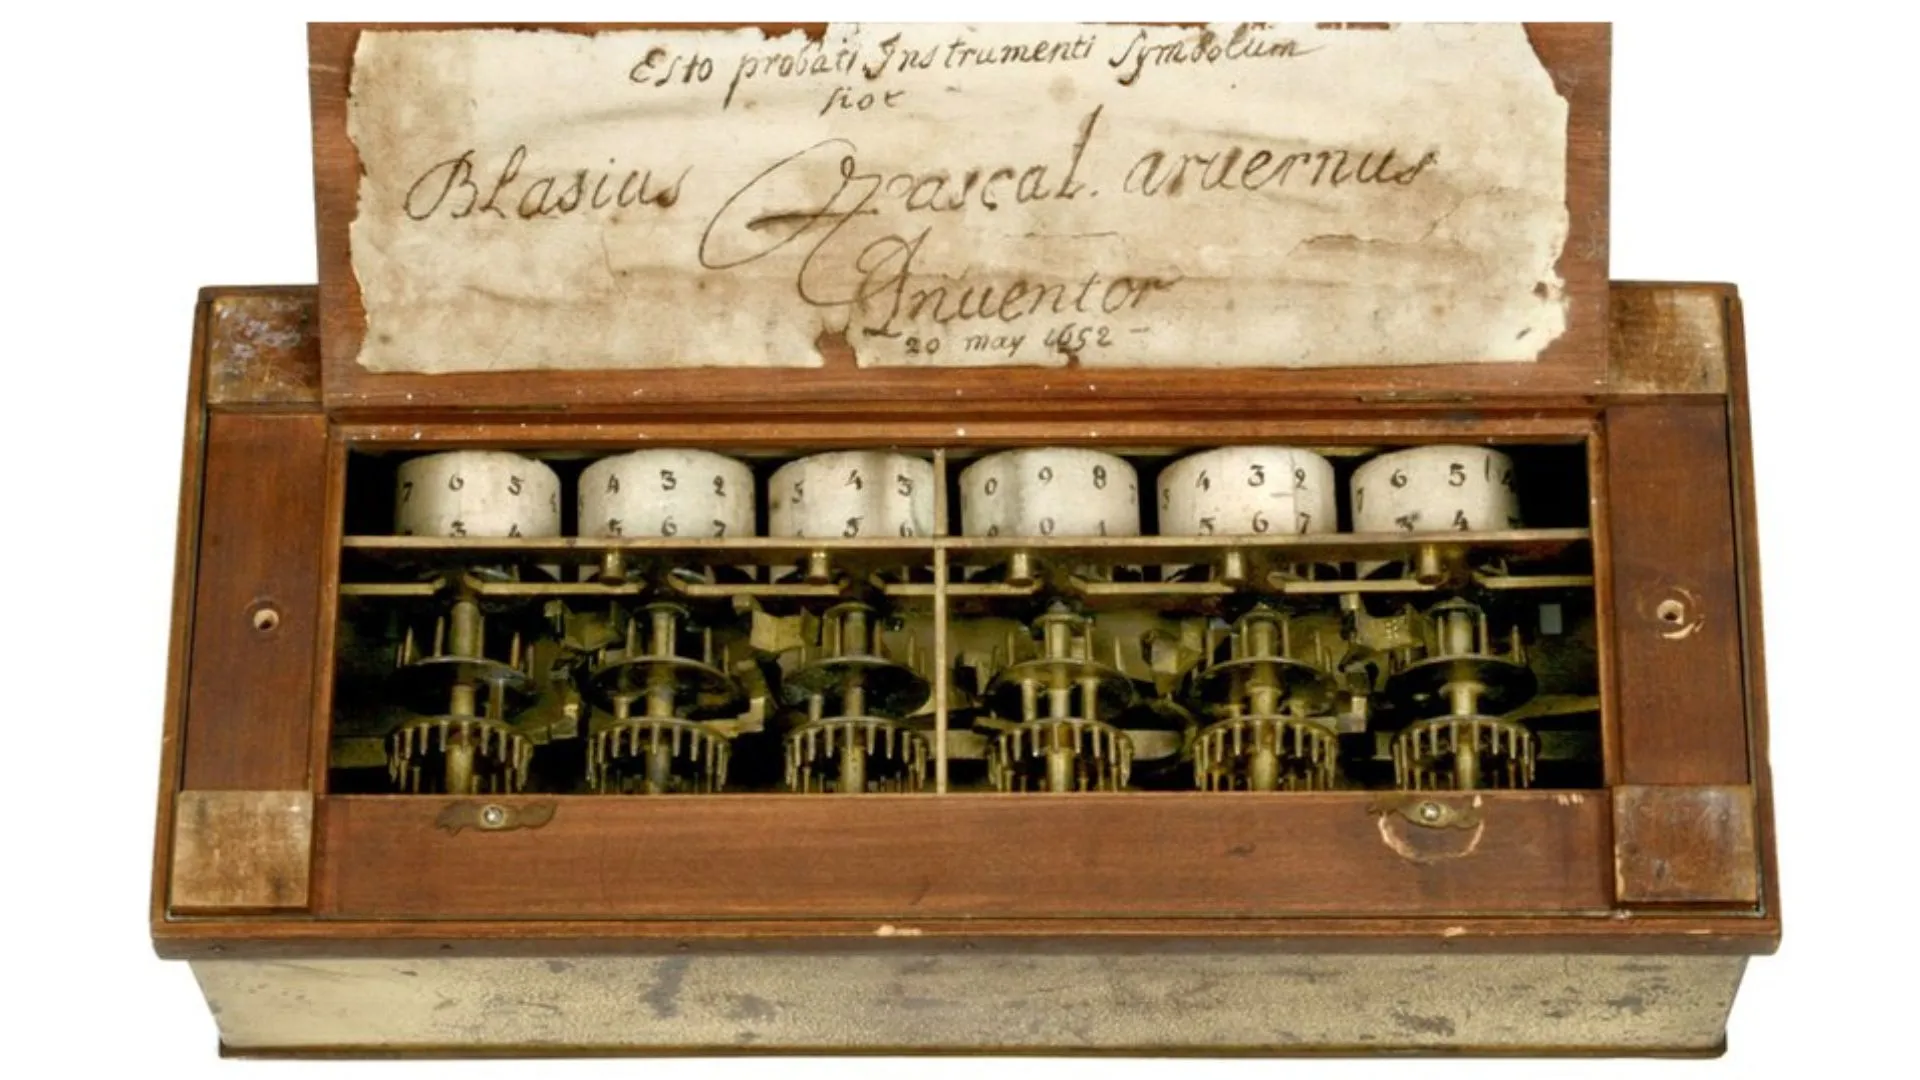 Esto probati Instrumenti Symbolum
hoc
Blasius Pascal. aruernus
Inuentor
20 may 1652
7 6 5 4 3 2 5 4 3 0 9 8 4 3 2 7 6 5 4
3 4 5 6 7 5 6 0 1 5 6 7 3 4